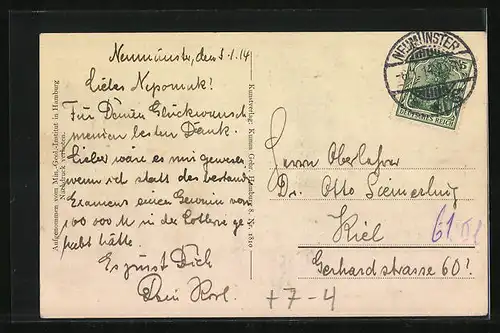 Neumünster, den 5.1.14
Liebes Nepomuk!
Für Deinen Glückwunsch
meinen besten Dank.
Lieber wäre es mir gewesen
wenn ich statt des bestand.
Examens einen Gewinn von
100 000 M in der Lotterie ge-
habt hätte.
Es grüsst Dich
Dein Karl.
Aufgenommen vom Min.-Geol. Institut in Hamburg
Nachdruck verboten.
Kunstverlag: Kumm Gebr. Hamburg 8. Nr. 1810
NEUMÜNSTER
DEUTSCHES REICH
5
Herrn Oberlehrer
Dr. Otto
Kiel
Gerhardstrasse 60!
61
+7-4